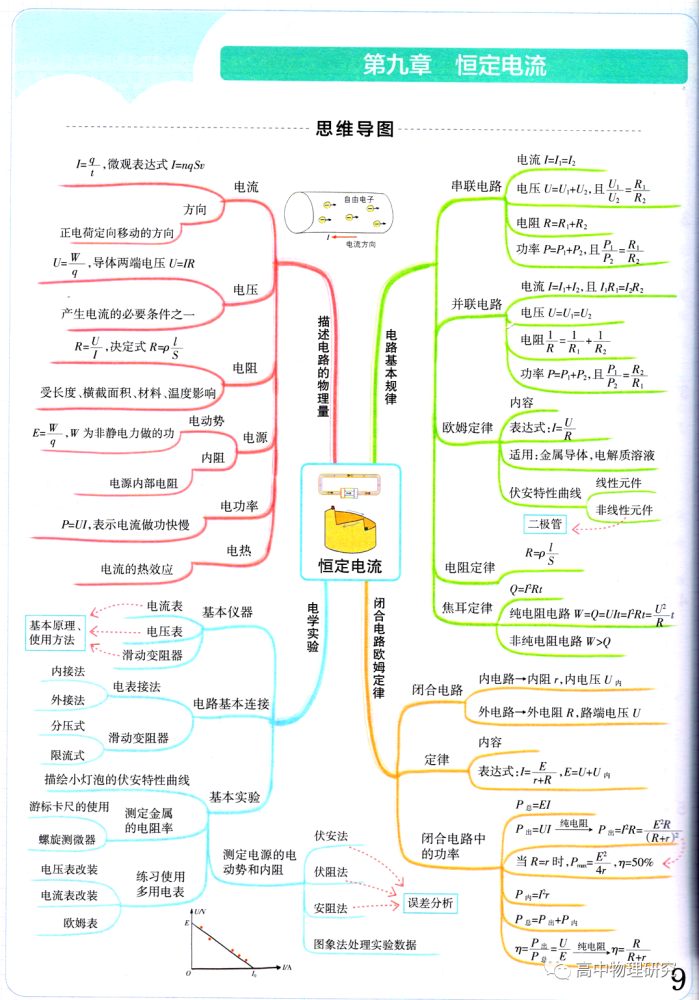 第九章 恒定电流
思维导图
I=q/t，微观表达式 I=nqSv
电流
方向
正电荷定向移动的方向
U=W/q，导体两端电压 U=IR
电压
产生电流的必要条件之一
R=U/I，决定式 R=ρl/S
电阻
受长度、横截面积、材料、温度影响
电动势
E=W/q，W 为非静电力做的功
电源
内阻
电源内部电阻
电功率
P=UI，表示电流做功快慢
电热
电流的热效应
描述电路的物理量
自由电子
I
电流方向
电路基本规律
串联电路
电流 I=I₁=I₂
电压 U=U₁+U₂，且U₁/U₂=R₁/R₂
电阻 R=R₁+R₂
功率 P=P₁+P₂，且P₁/P₂=R₁/R₂
并联电路
电流 I=I₁+I₂，且 I₁R₁=I₂R₂
电压 U=U₁=U₂
电阻1/R=1/R₁+1/R₂
功率 P=P₁+P₂，且P₁/P₂=R₂/R₁
欧姆定律
内容
表达式：I=U/R
适用：金属导体，电解质溶液
伏安特性曲线
线性元件
非线性元件
二极管
电阻定律
R=ρl/S
焦耳定律
Q=I²Rt
纯电阻电路 W=Q=UIt=I²Rt=U²/R t
非纯电阻电路 W>Q
恒定电流
电学实验
基本仪器
电流表
电压表
滑动变阻器
基本原理、
使用方法
电路基本连接
电表接法
内接法
外接法
滑动变阻器
分压式
限流式
基本实验
描绘小灯泡的伏安特性曲线
测定金属
的电阻率
游标卡尺的使用
螺旋测微器
练习使用
多用电表
电压表改装
电流表改装
欧姆表
测定电源的电
动势和内阻
伏安法
伏阻法
安阻法
误差分析
图象法处理实验数据
U/V
E
O
I₀
I/A
闭合电路欧姆定律
闭合电路
内电路→内阻 r，内电压 U内
外电路→外电阻 R，路端电压 U
定律
内容
表达式：I=E/(r+R)，E=U+U内
闭合电路中
的功率
P总=EI
P出=UI 纯电阻→ P出=I²R=E²R/(R+r)²
当 R=r 时，Pmax=E²/4r，η=50%
P内=I²r
P总=P出+P内
η=P出/P总=U/E 纯电阻→ η=R/(R+r)
高中物理研究
9